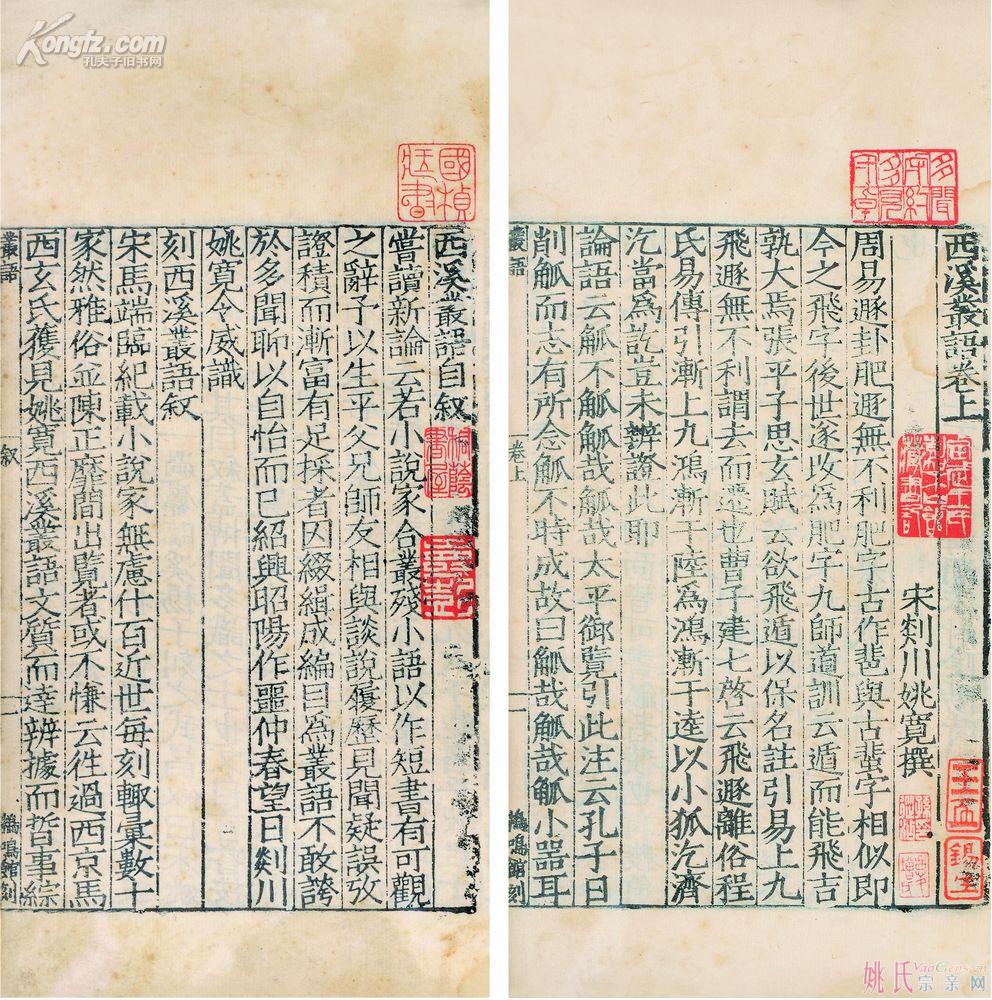 Kongfz.com
孔夫子旧书网
國楨
藏書
西溪叢語自叙
桐蔭
書屋
嘗讀新論云若小說家合叢殘小語以作短書有可觀
之辭予以生平父兄師友相與談說履歷見聞疑誤攷
證積而漸富有足採者因綴緝成編目爲叢語不敢誇
於多聞聊以自怡而已紹興昭陽作噩仲春望日剡川
姚寬令威識
刻西溪叢語叙
宋馬端臨紀載小說家無慮什百近世每刻輒彙數十
家然雅俗並陳正靡間出覽者或不慊云徃過西京馬
西玄氏獲見姚寬西溪叢語文質而達辨據而晢事綜
叢語 叙 一 鴳鳴館刻
多聞
守約
多見
守卓
西溪叢語卷上
宋剡川姚寬撰
周易遯卦肥遯無不利肥字古作𦐃與古蜚字相似即
今之飛字後世遂改爲肥字九師道訓云遁而能飛吉
孰大焉張平子思玄賦云欲飛遁以保名註引易上九
飛遯無不利謂去而遷也曹子建七啓云飛遯離俗程
氏易傳引漸上九鴻漸于陸爲鴻漸于逵以小狐汔濟
汔當爲訖豈未辨證此耶
論語云觚不觚觚哉觚哉太平御覽引此注云孔子曰
削觚而志有所念觚不時成故曰觚哉觚哉觚小器耳
叢語 卷上 一 鴳鳴館刻
姚氏宗亲网